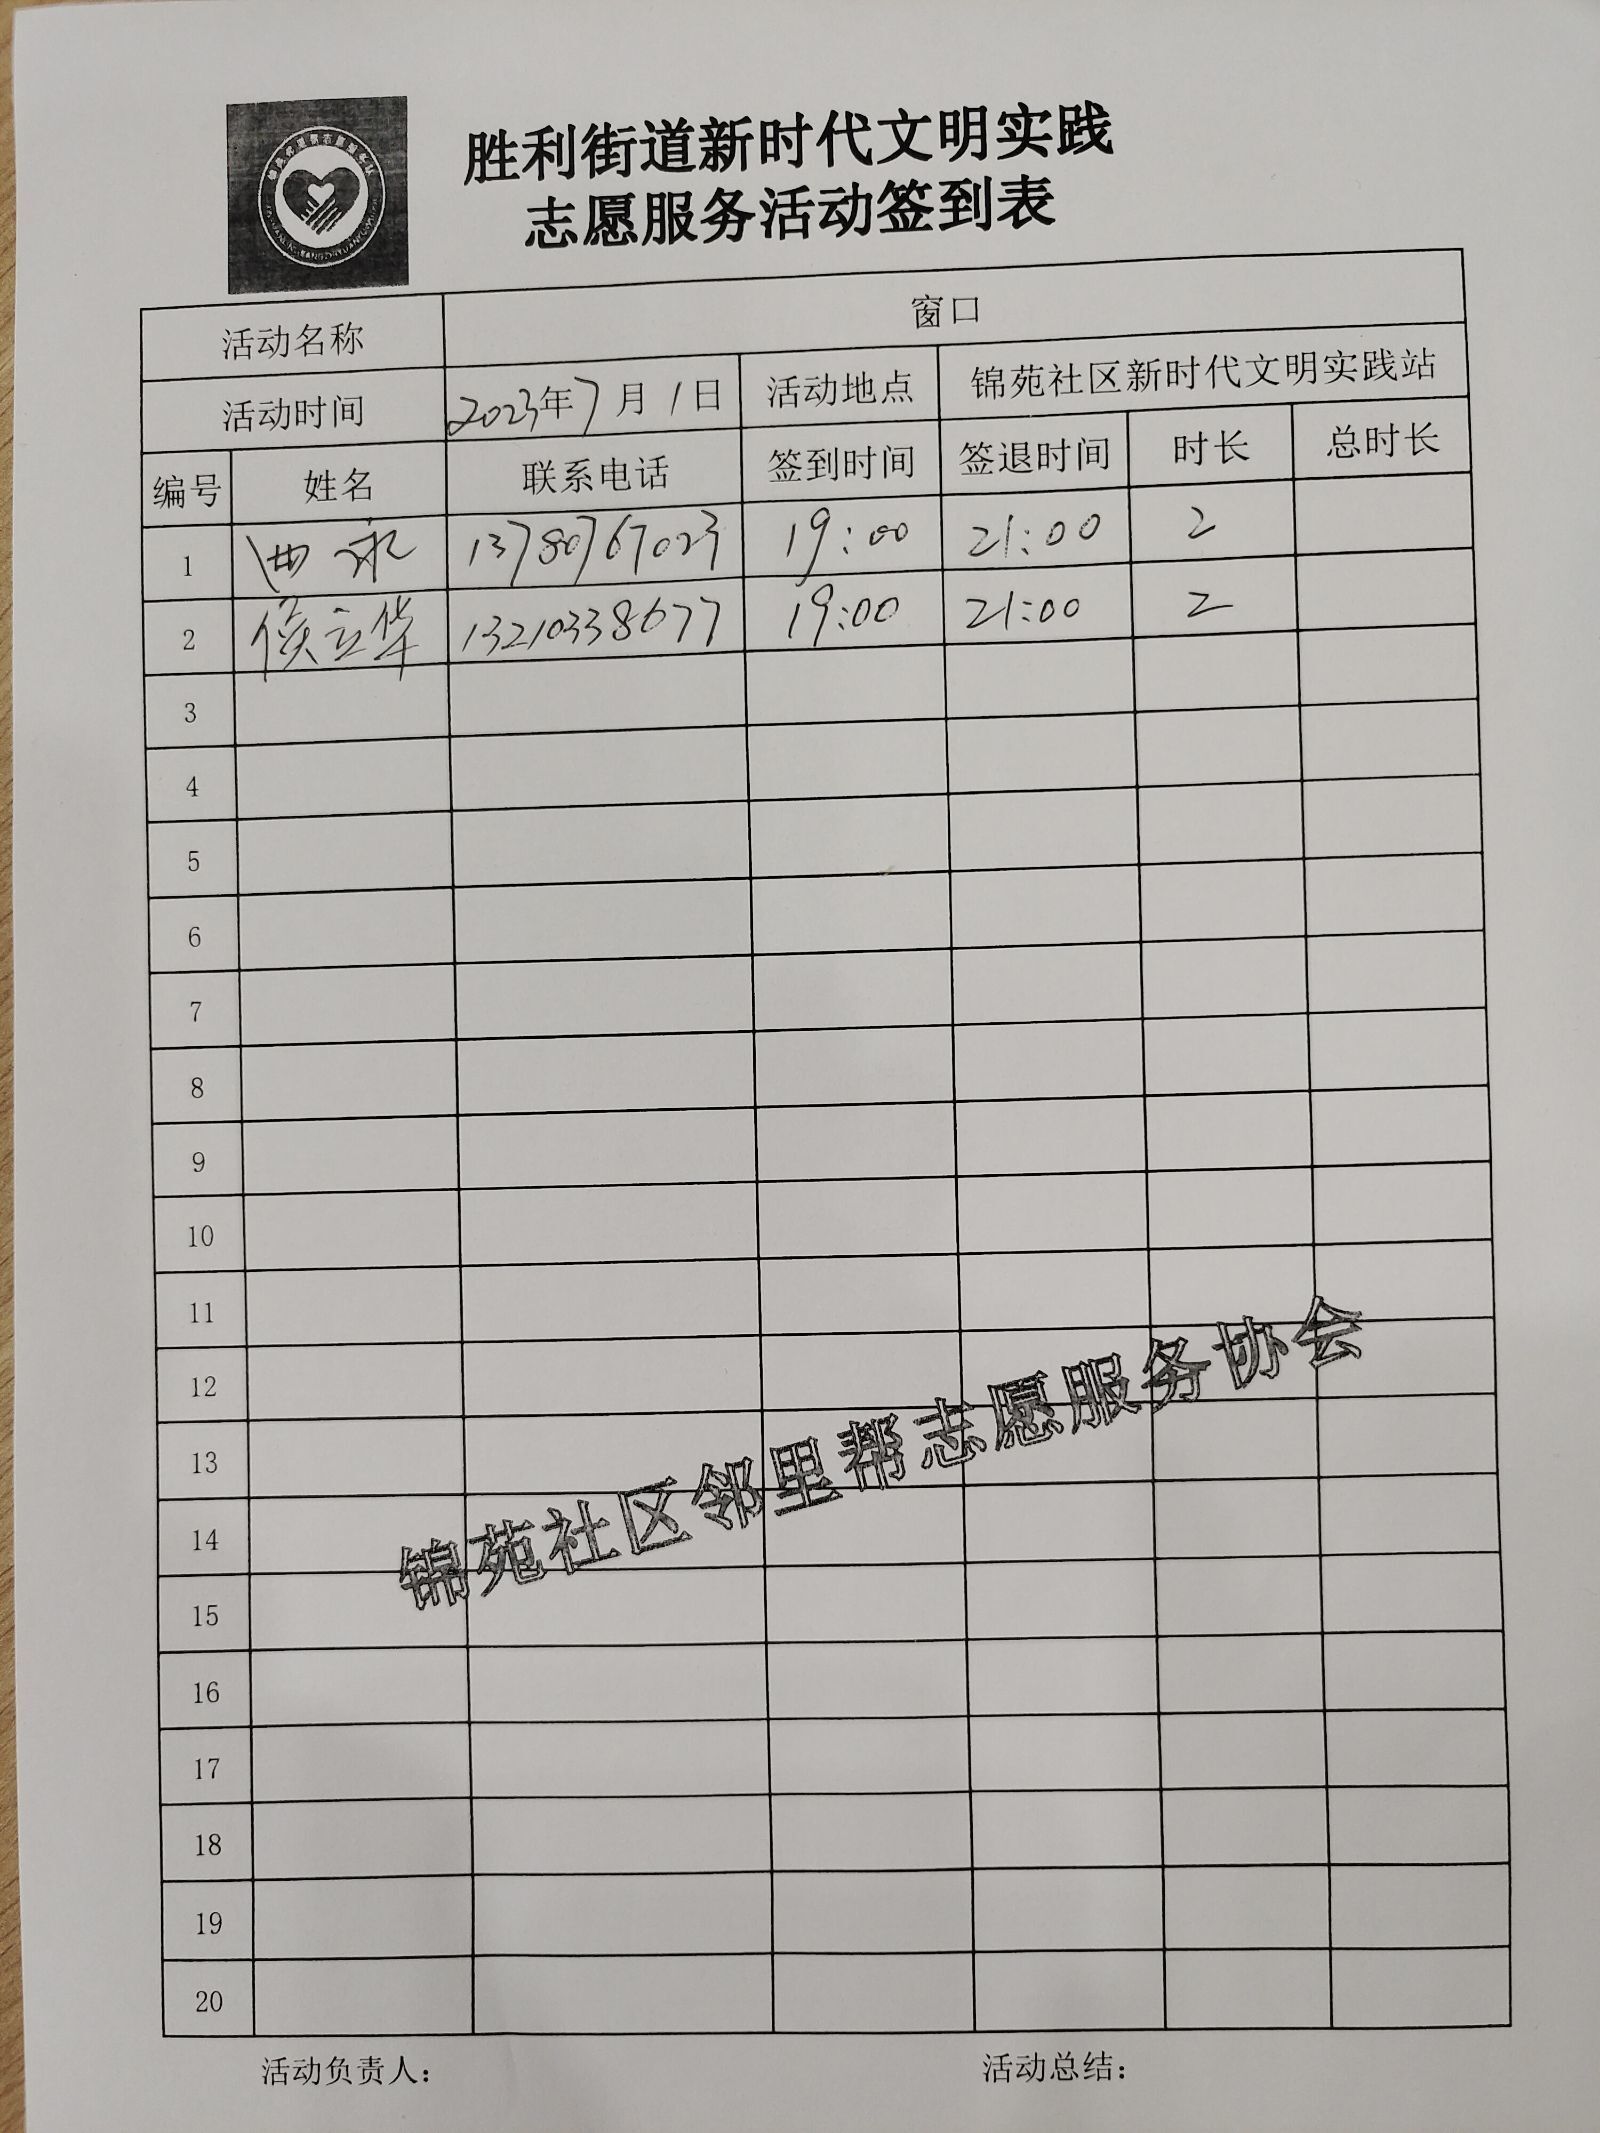 胜利街道新时代文明实践
志愿服务活动签到表
活动名称 窗口
活动时间 2023年7月1日 活动地点 锦苑社区新时代文明实践站
编号 姓名 联系电话 签到时间 签退时间 时长 总时长
1 13780767023 19:00 21:00 2
2 侯立华 13210338677 19:00 21:00 2
3
4
5
6
7
8
9
10
11
12
13
14
15
16
17
18
19
20
锦苑社区邻里帮志愿服务协会
活动负责人： 活动总结：